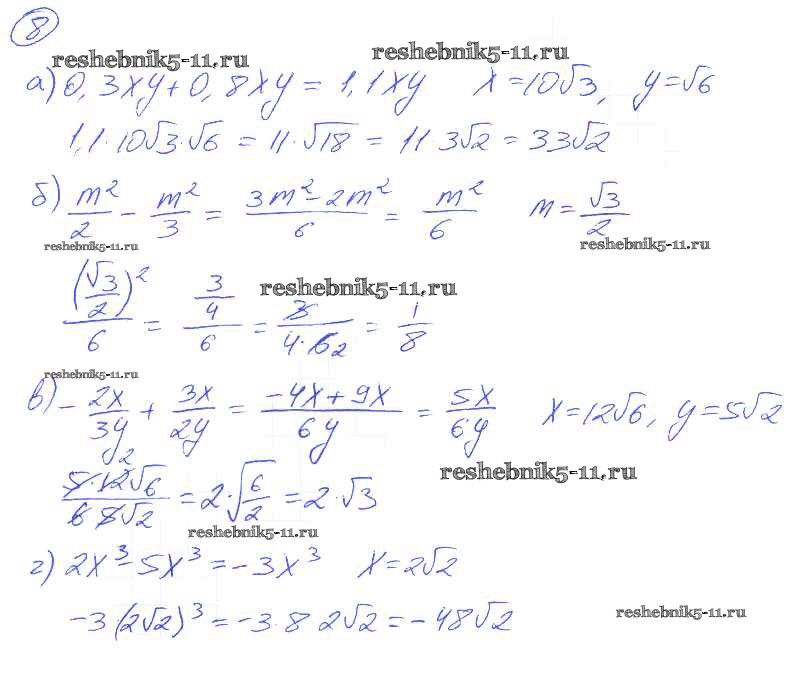 8
reshebnik5-11.ru reshebnik5-11.ru
а) 0,3xy + 0,8xy = 1,1xy x = 10√3, y = √6
1,1·10√3·√6 = 11·√18 = 11 3√2 = 33√2
б) m²/2 - m²/3 = (3m² - 2m²)/6 = m²/6 m = √3/2
reshebnik5-11.ru reshebnik5-11.ru
(√3/2)²/6 = (3/4)/6 = 3/(4·6₂) = 1/8
reshebnik5-11.ru
reshebnik5-11.ru
в) -2x/3y + 3x/2y = (-4x + 9x)/6y = 5x/6y x = 12√6, y = 5√2
5·12²√6/(6 5√2) = 2·√(6/2) = 2·√3
reshebnik5-11.ru
reshebnik5-11.ru
г) 2x³ - 5x³ = -3x³ x = 2√2
-3(2√2)³ = -3·8 2√2 = -48√2
reshebnik5-11.ru